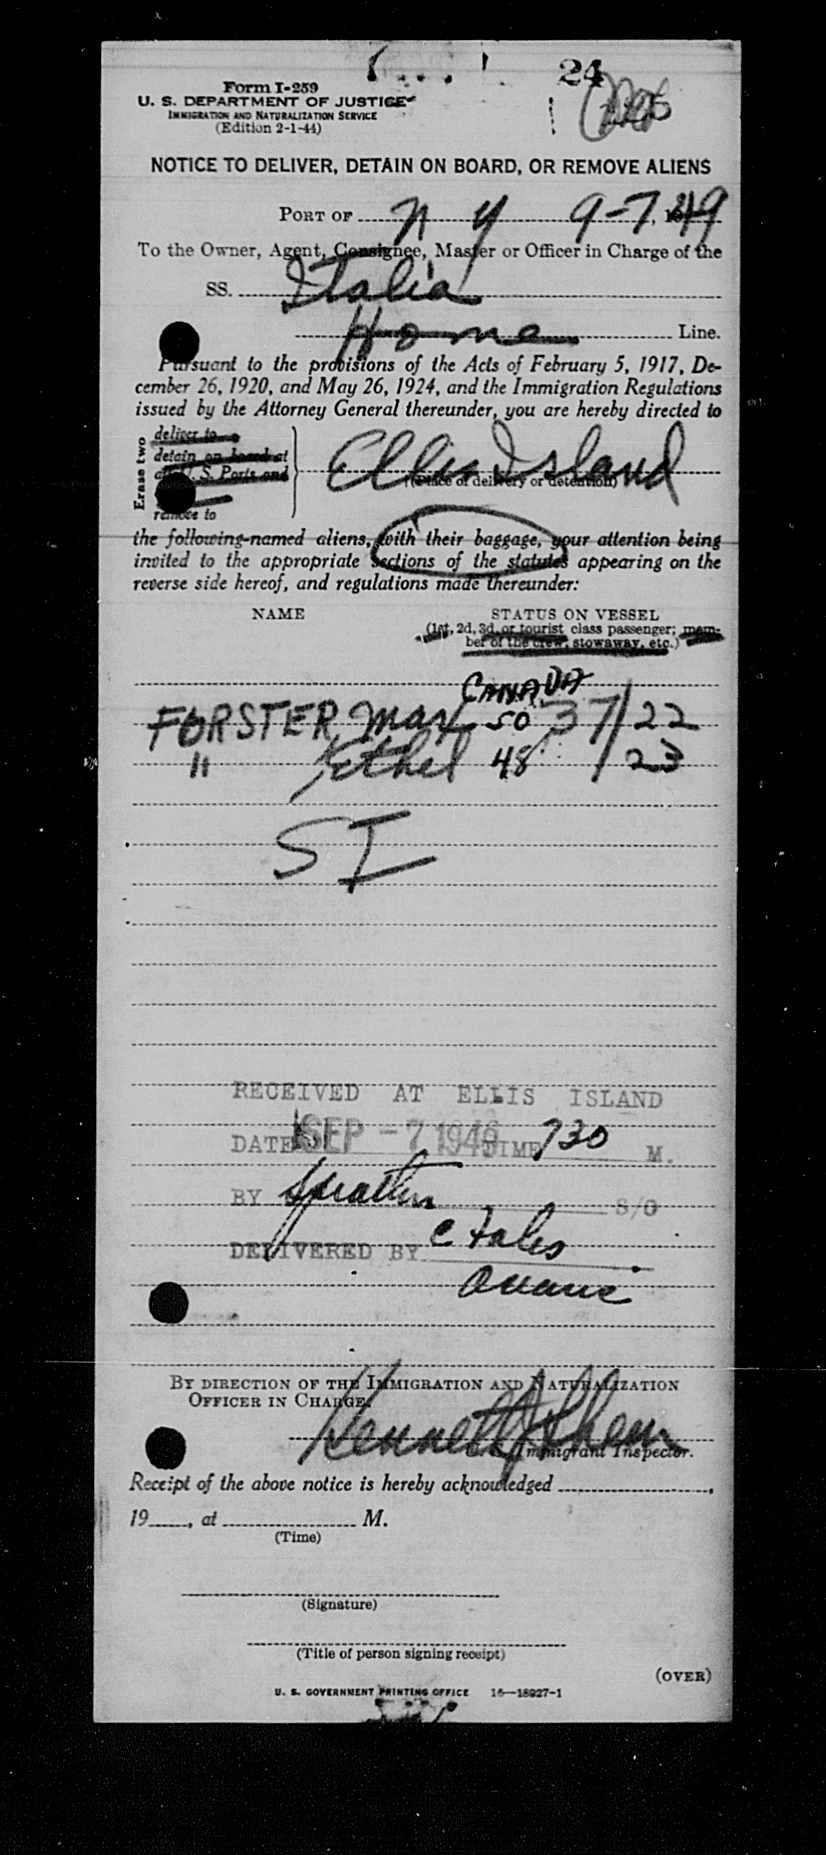 24
Form I-259
U. S. DEPARTMENT OF JUSTICE
IMMIGRATION AND NATURALIZATION SERVICE
(Edition 2-1-44)
NOTICE TO DELIVER, DETAIN ON BOARD, OR REMOVE ALIENS
PORT OF N Y 9-7, 1949
To the Owner, Agent, Consignee, Master or Officer in Charge of the
SS. Italia
Home Line.
Pursuant to the provisions of the Acts of February 5, 1917, De-
cember 26, 1920, and May 26, 1924, and the Immigration Regulations
issued by the Attorney General thereunder, you are hereby directed to
Erase two
deliver to
detain on board at
U. S. Ports and
remove to
Ellis Island
(Place of delivery or detention)
the following-named aliens, with their baggage, your attention being
invited to the appropriate sections of the statutes appearing on the
reverse side hereof, and regulations made thereunder:
NAME STATUS ON VESSEL
(1st, 2d, 3d, or tourist class passenger; mem-
ber of the crew, stowaway, etc.)
CANADA
FORSTER, Max 50 37/22
" Ethel 48 /23
SI
RECEIVED AT ELLIS ISLAND
DATE SEP -7 1949 TIME 730 M.
BY S/O
DELIVERED BY
BY DIRECTION OF THE IMMIGRATION AND NATURALIZATION
OFFICER IN CHARGE.
Kenneth
Immigrant Inspector.
Receipt of the above notice is hereby acknowledged
19 , at M.
(Time)
(Signature)
(Title of person signing receipt)
(OVER)
U. S. GOVERNMENT PRINTING OFFICE 16—18927-1